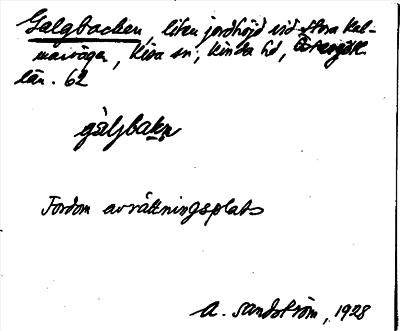 Galgbacken, liten jordhöjd vid stora Kal-
marvägen, Kisa sn, Kinda hd, Östergötl.
län. 62
gàljbakn
Fordom avrättningsplats
A. Sandström, 1928